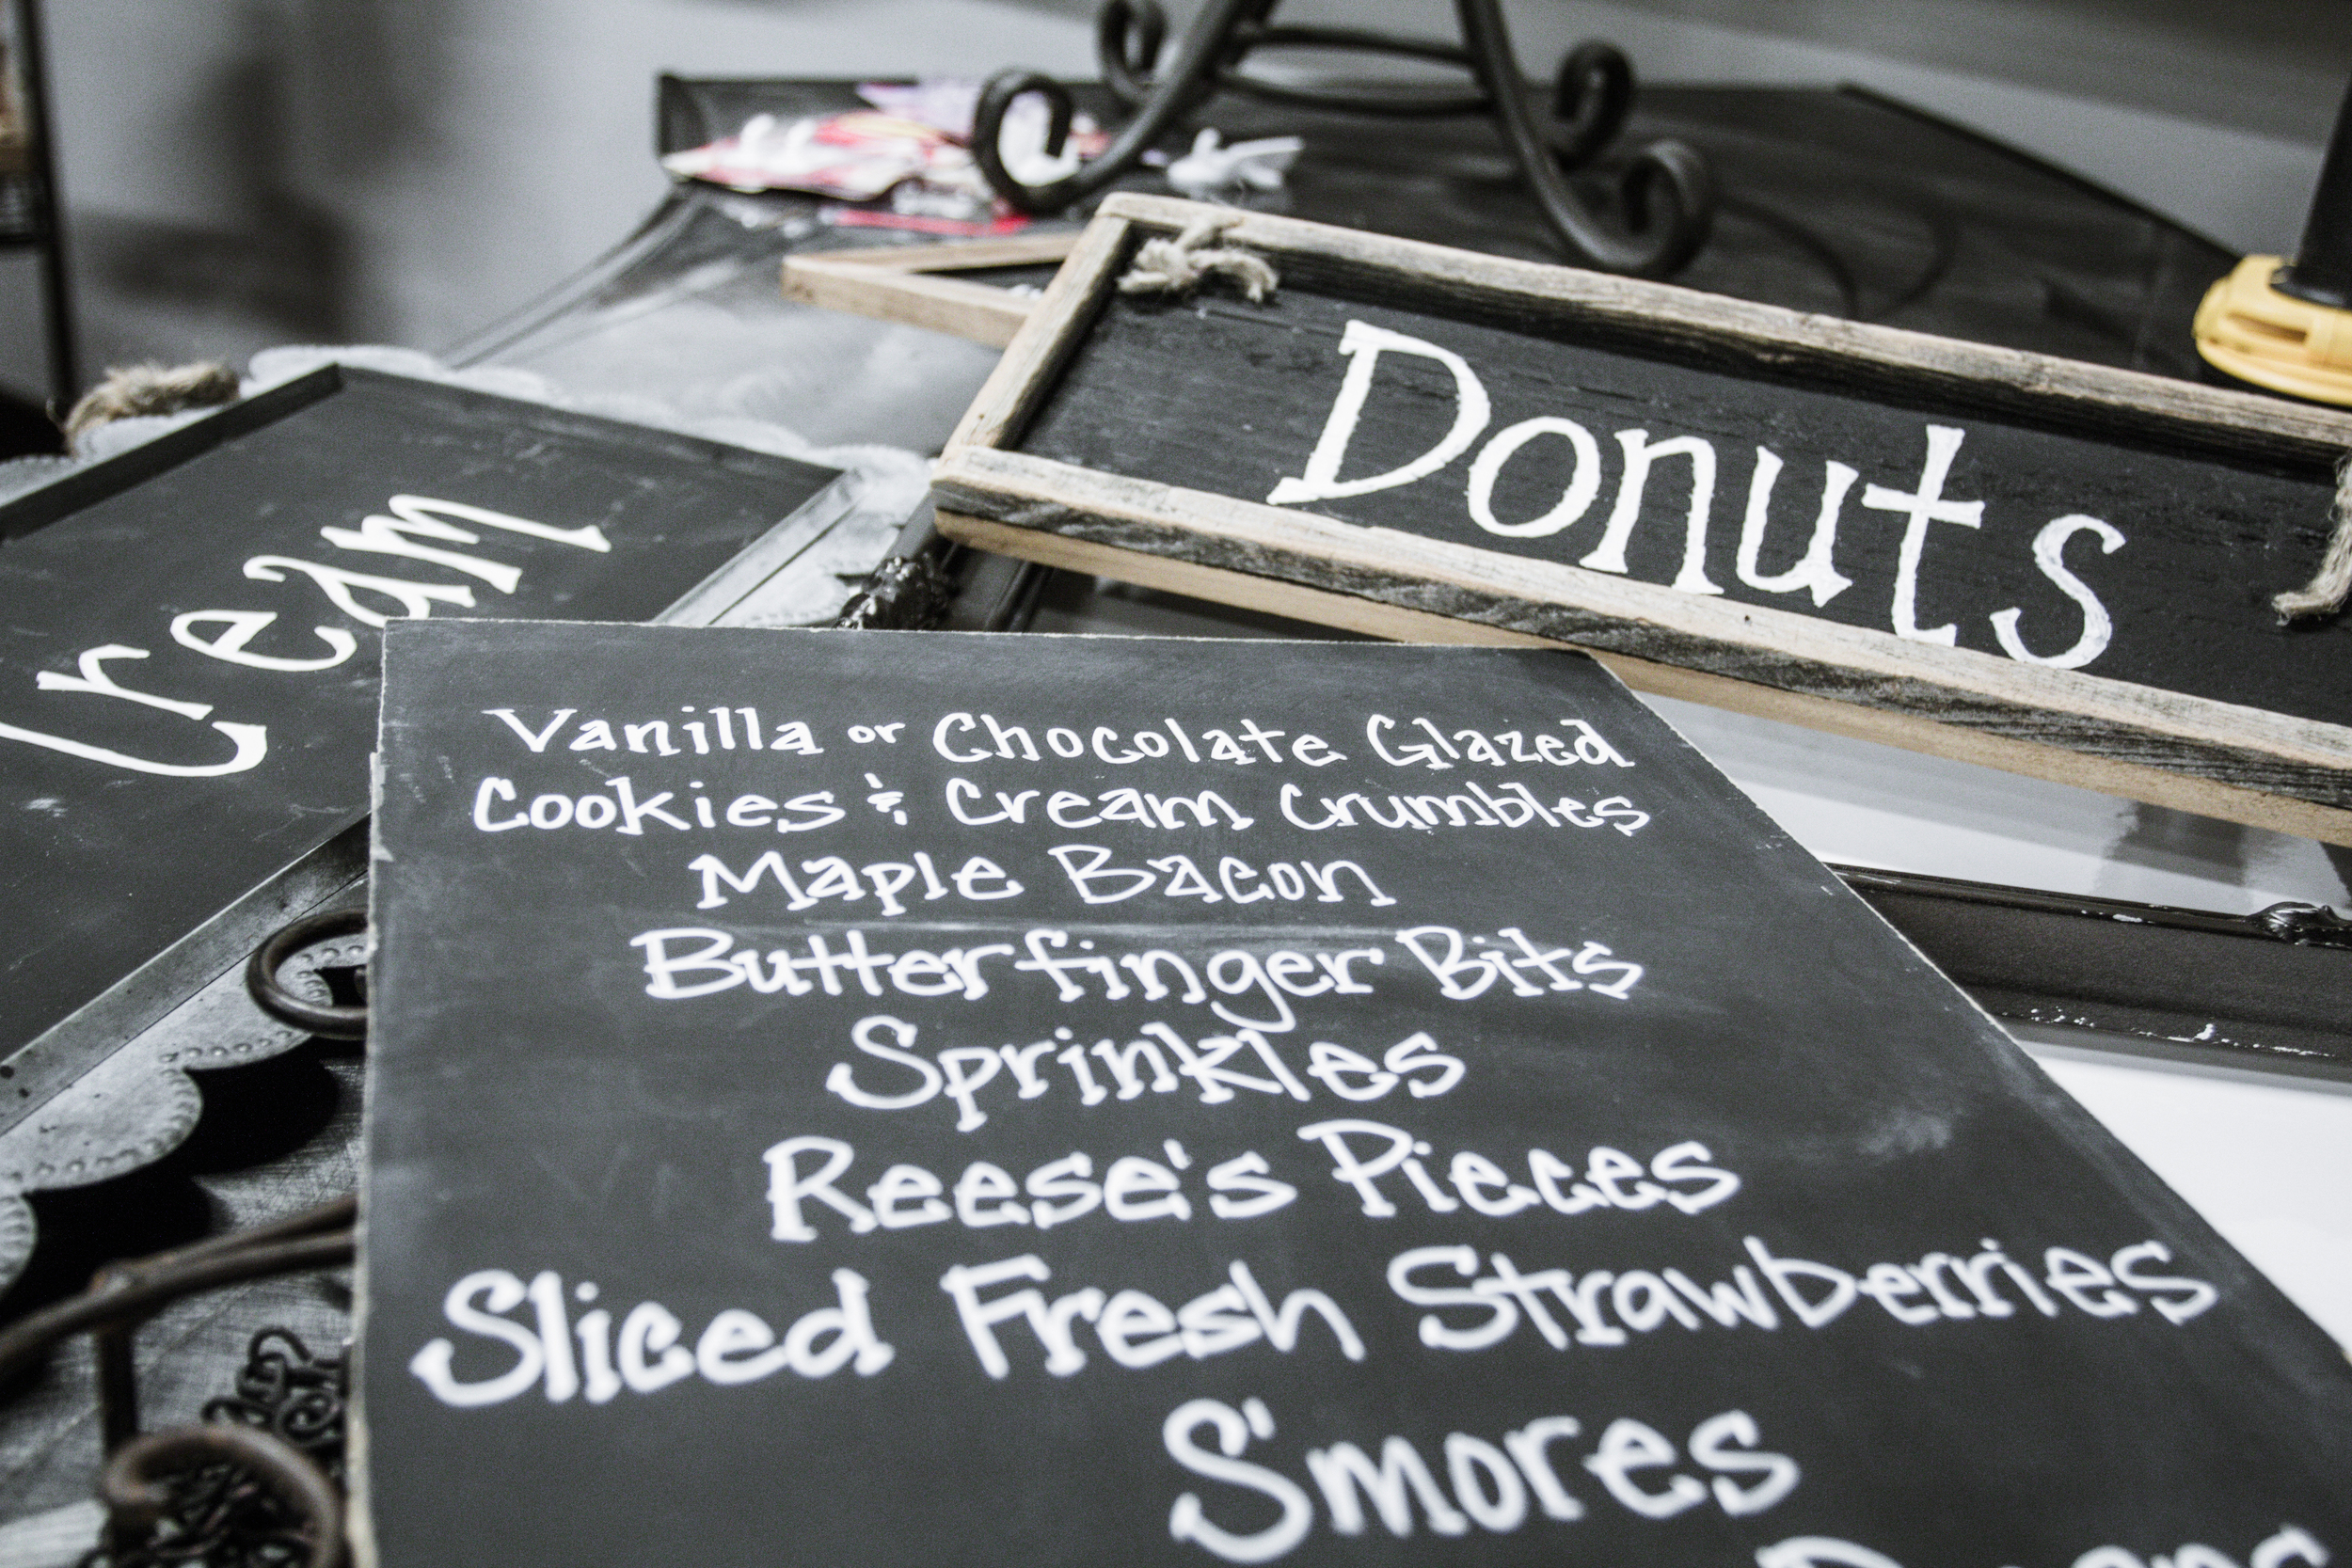 Donuts
Cream
Vanilla or Chocolate Glazed
Cookies & Cream Crumbles
Maple Bacon
Butterfinger Bits
Sprinkles
Reese's Pieces
Sliced Fresh Strawberries
S'mores